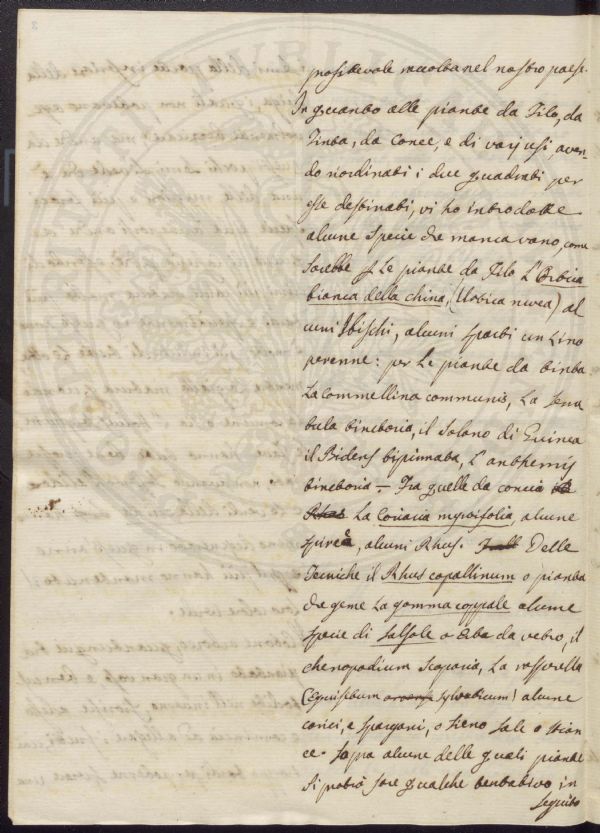 prossedevole raccolta nel nostro paese.
In quanto alle piante da Filo, da
Tinta, da Conce, e di varj usi, aven-
do riordinati i due quadrati per
esse destinati, vi ho introdotte
alcune specie che mancavano, come
sarebbe Le piante da Filo L'Ortica
bianca della china, (Urtica nivea) al
cuni Ibischi, alcuni sparti un Lino
perenne: per Le piante da tinta
La Commellina communis, La Serra
tula tinctoria, il Solano di Guinea
il Bidens bipinnata, L'anthemis
tinctoria — Fra quelle da concia
Rhus La Coriaria myrtifolia, alcune
spiree, alcuni Rhus. Delle
Tecniche il Rhus copallinum o pianta
che geme La gomma coppale alcune
specie di Salsole o erba da vetro, il
chenopodium Scoparia, La rasperella
(Equisetum arvense sylvaticum) alcune
carici, e Spargani, o sieno Sale o Stian
ce. Sopra alcune delle quali piante
Si potrà fare qualche tentativo in
seguito